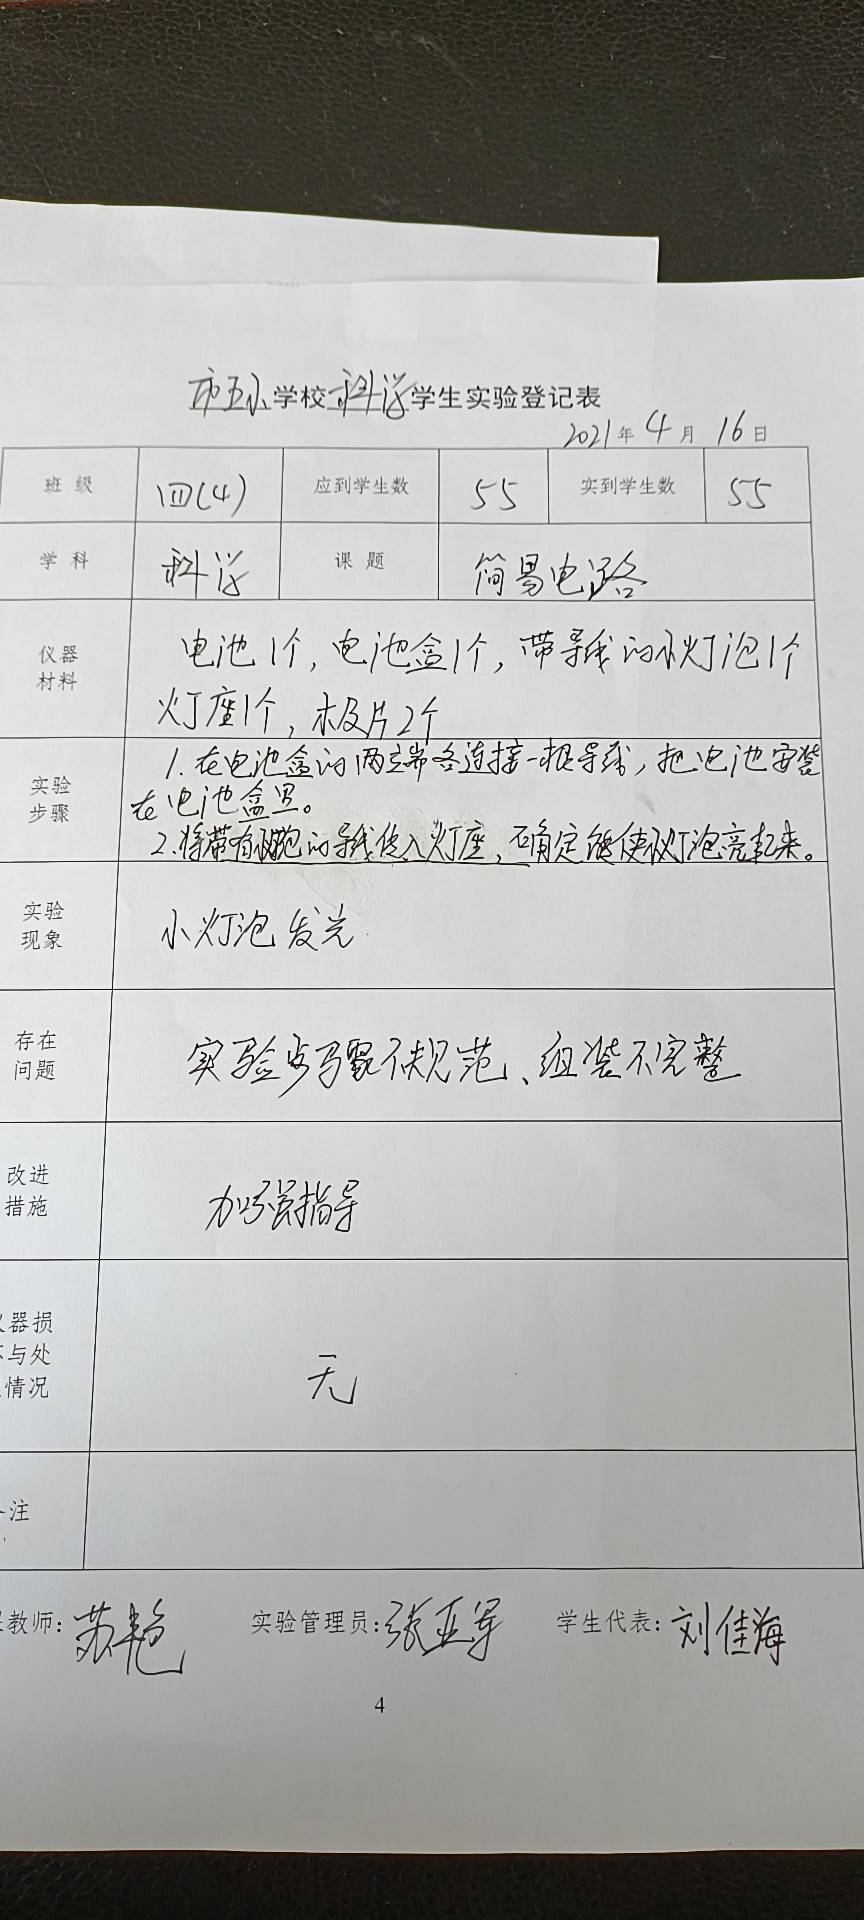 市五小学校科学学生实验登记表
2021年4月16日
班级 四(4) 应到学生数 55 实到学生数 55
学科 科学 课题 简易电路
仪器
材料
电池1个,电池盒1个,带导线的小灯泡1个
灯座1个,极片2个
实验
步骤
1.在电池盒的两端各连接一根导线,把电池安装
在电池盒里。
2.将带有小灯泡的导线接入灯座,确定能使小灯泡亮起来。
实验
现象
小灯泡发光
存在
问题
实验步骤不规范、组装不完整
改进
措施
加强指导
器损
与处
情况
无
注
教师:苏艳 实验管理员:张亚军 学生代表:刘佳海
4